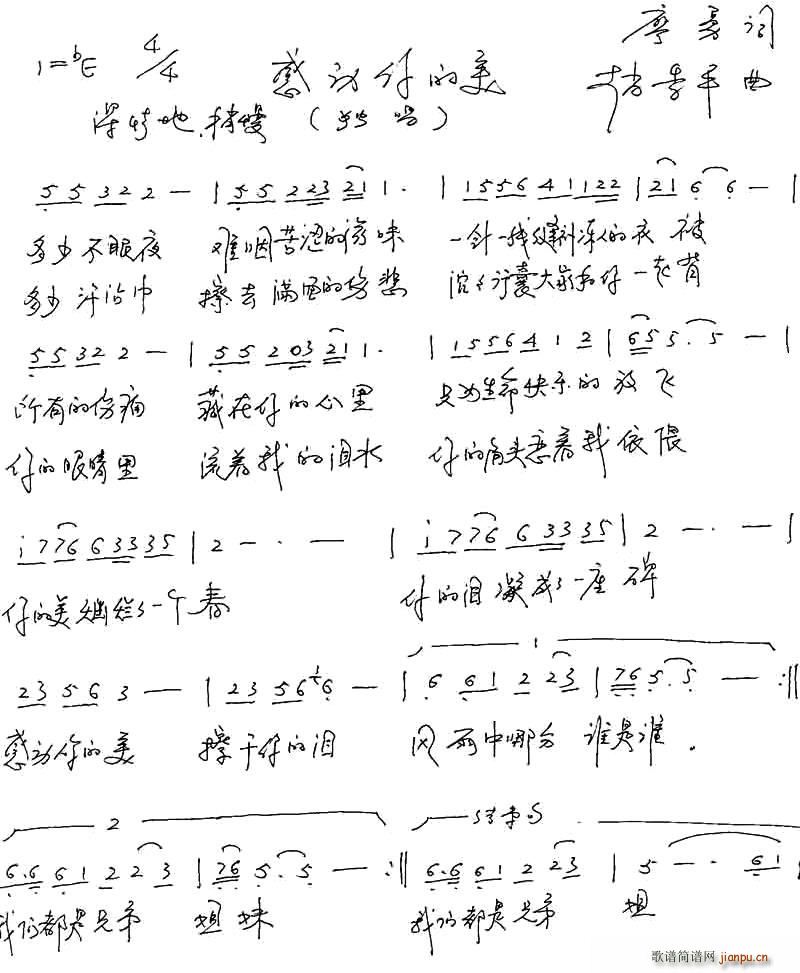 1=bE 4/4 感动你的美 廖勇词
深情地.稍慢 (独唱) 曲
5 5 3 2 2 — | 5 5 2 2 3 2 1 1 · | 1 5 5 6 4 1 1 2 2 | 2 1 6 6 — |
多少不眠夜 难咽苦涩的滋味 一针一线缝制冻人的衣被
多少汗沾巾 擦去满面的伤悲 沉沉行囊大家和你一起背
5 5 3 2 2 — | 5 5 2 0 3 2 1 1 · | 1 5 5 6 4 1 2 | 6 5 5 · 5 — |
所有的伤痛 藏在你的心里 只为生命快乐的放飞
你的眼睛里 流着我的泪水 你的肩头恋着我依偎
i 7 7 6 6 3 3 3 5 | 2 — · — | i 7 7 6 6 3 3 3 5 | 2 — · — |
你的美灿烂了一个春 你的泪凝成了一座碑
2 3 5 6 3 — | 2 3 5 6 1 6 · — | 6 6 1 2 2 3 | 7 6 5 · 5 — :||
感动你的美 擦干你的泪 风雨中哪分谁是谁.
2 结束句
6 · 6 6 1 2 2 3 | 7 6 5 · 5 — · :|| 6 · 6 6 1 2 2 3 | 5 — · · 6 1 |
我们都是兄弟姐妹 我们都是兄弟姐
歌谱简谱网 jianpu.cn